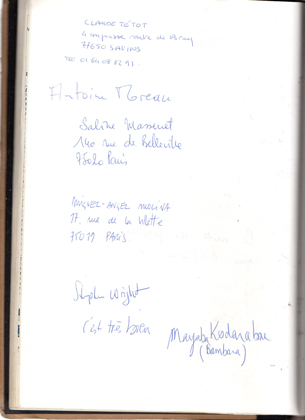 CLAUDE TÉTOT
4 impasse
77650 SAVINS
Tel 01 64 08 82 91.
Antoine Moreau
Sabine Massenet
140 rue de Belleville
75020 Paris
MIGUEL-ANGEL MOLINA
17, rue de la Villette
75019 PARIS
Stephen Wright
c'est très bien
(Bambara)